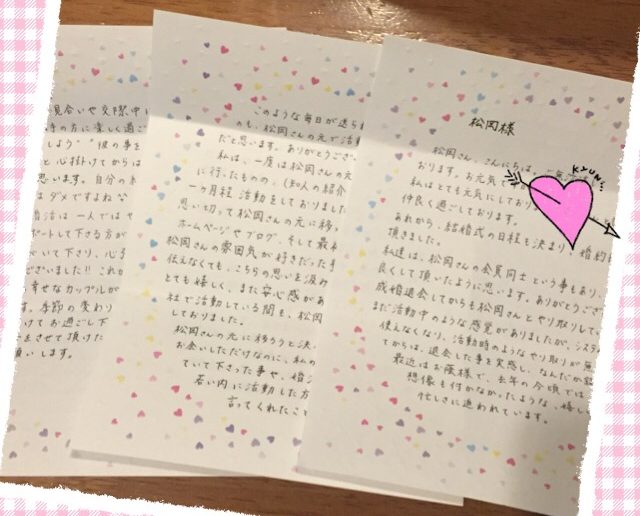 松岡様
松岡さん、こんにちは。
おります。お元気で
私はとても元気にしており
仲良く過ごしております。
あれから、結婚式の日程も決まり、婚約
頂きました。
私達は、松岡さんの会員同士という事もあり、
良くして頂いたように思います。ありがとうござ
成婚退会してからも松岡さんとやり取りしてい
まだ活動中のような感覚がありましたが、システ
使えなくなり、活動時のようなやり取りが無
てからは、退会した事を実感し、なんだか
最近はお蔭様で、去年の今頃では
想像も付かなかったような、嬉し
忙しさに追われています。
KYUN...
このような毎日が送られ
のも、松岡さんの元で活動
だと思います。ありがとうござい
私は、一度は松岡さんの元
に行ったものの、(知人の紹介
一ヶ月程 活動をしておりました
思い切って松岡さんの元に移っ
ホームページやブログ、そして最初
松岡さんの雰囲気が好きだった事
伝えなくても、こちらの思いを汲み
とても嬉しく、また安心感があ
社で活動している間も、松岡
しておりました。
松岡さんの元に移ろうと決
お会いしただけなのに、私の
ていて下さった事や、婚活
若い内に活動した方
言ってくれたこと
見合いや交際中
の方に楽しく過ご
しよう" "彼の事を
と心掛けてからは
思います。自分の
はダメですよね
婚活は一人ではせ
ポートして下さる方が
でいて下り、心
ございました!! これか
幸せなカップルが
す。季節の変わり
けてお過ごし下
をさせて頂けた
願いします。